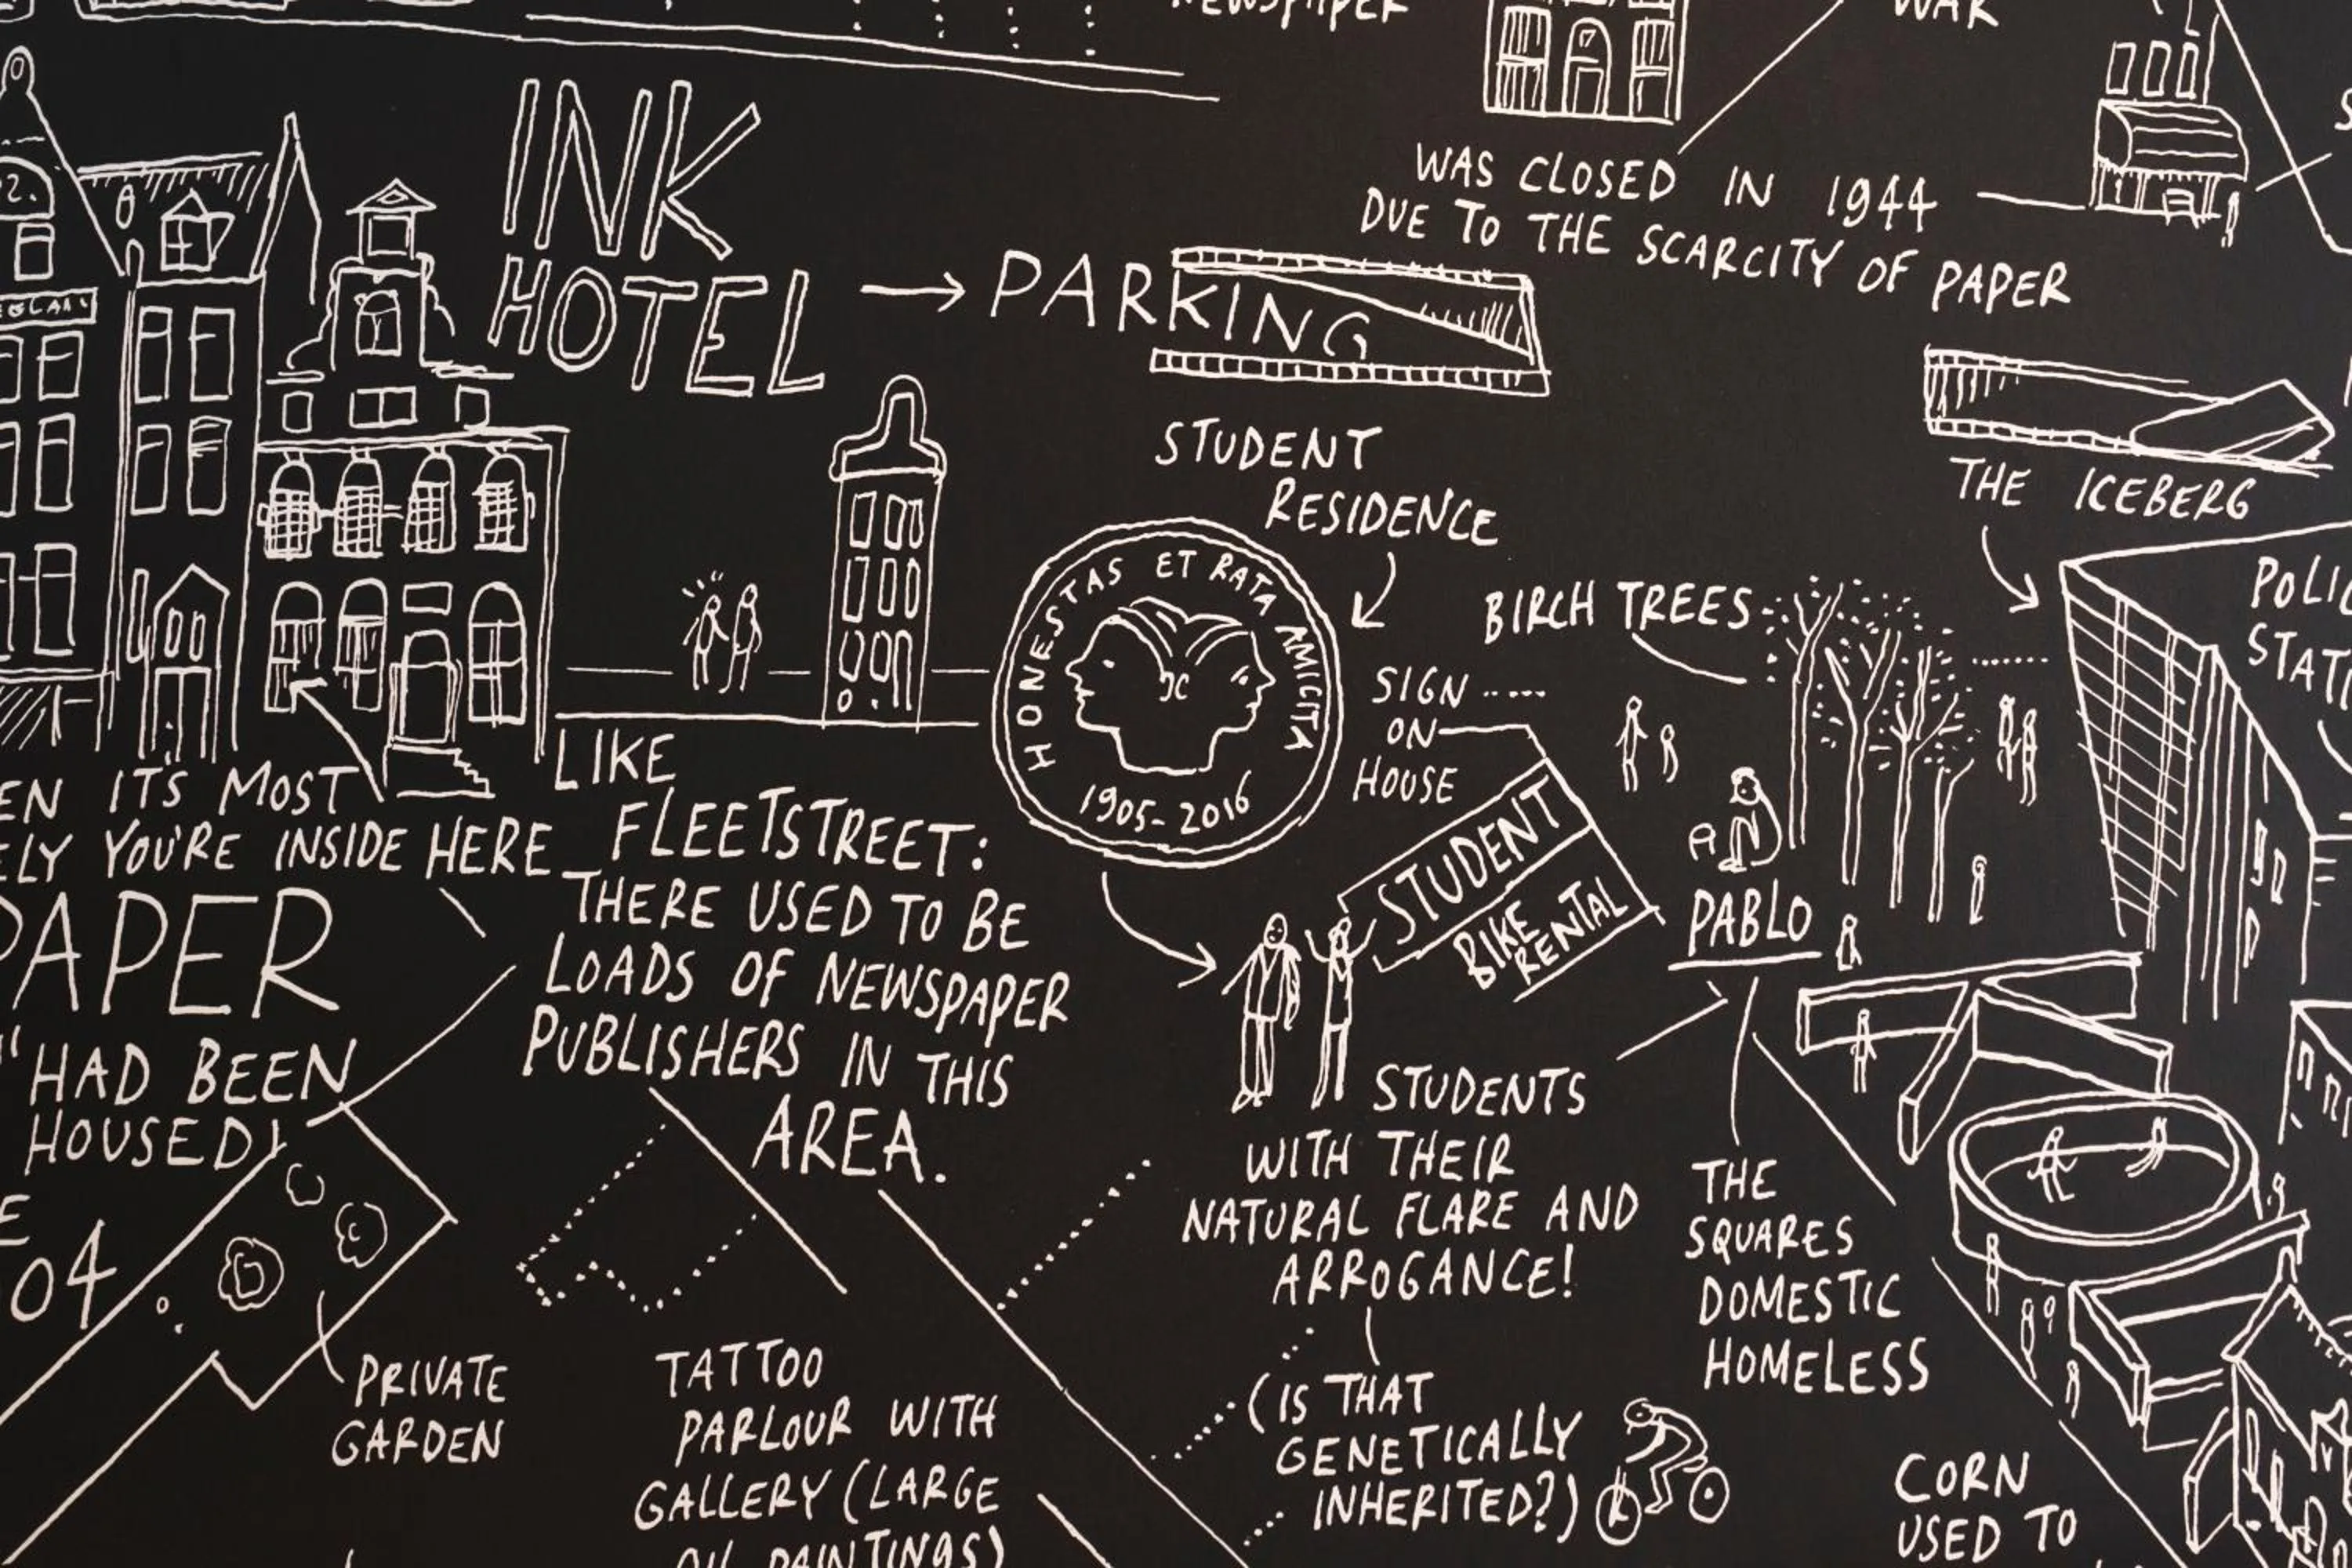 NEWSPAPER
WAR
INK
HOTEL
PARKING
WAS CLOSED IN 1944
DUE TO THE SCARCITY OF PAPER
STUDENT
RESIDENCE
HONESTAS ET RATA AMICITA
1905-2016
SIGN
ON
HOUSE
BIRCH TREES
THE ICEBERG
STUDENT
BIKE
RENTAL
PABLO
IT'S MOST
YOU'RE INSIDE HERE
PAPER
HAD BEEN
HOUSED)
04
LIKE
FLEETSTREET:
THERE USED TO BE
LOADS OF NEWSPAPER
PUBLISHERS IN THIS
AREA.
STUDENTS
WITH THEIR
NATURAL FLARE AND
ARROGANCE!
(IS THAT
GENETICALLY
INHERITED?)
THE
SQUARES
DOMESTIC
HOMELESS
PRIVATE
GARDEN
TATTOO
PARLOUR WITH
GALLERY (LARGE
OIL PAINTINGS)
CORN
USED TO